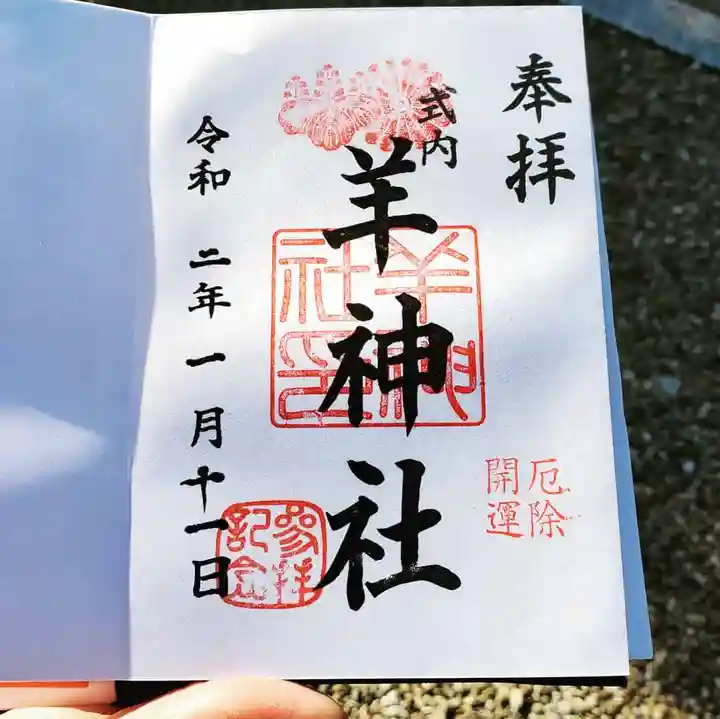 奉拝
式内
羊神社
羊神社印
厄除
開運
参拝
記念
令和 二年 一月 十一日